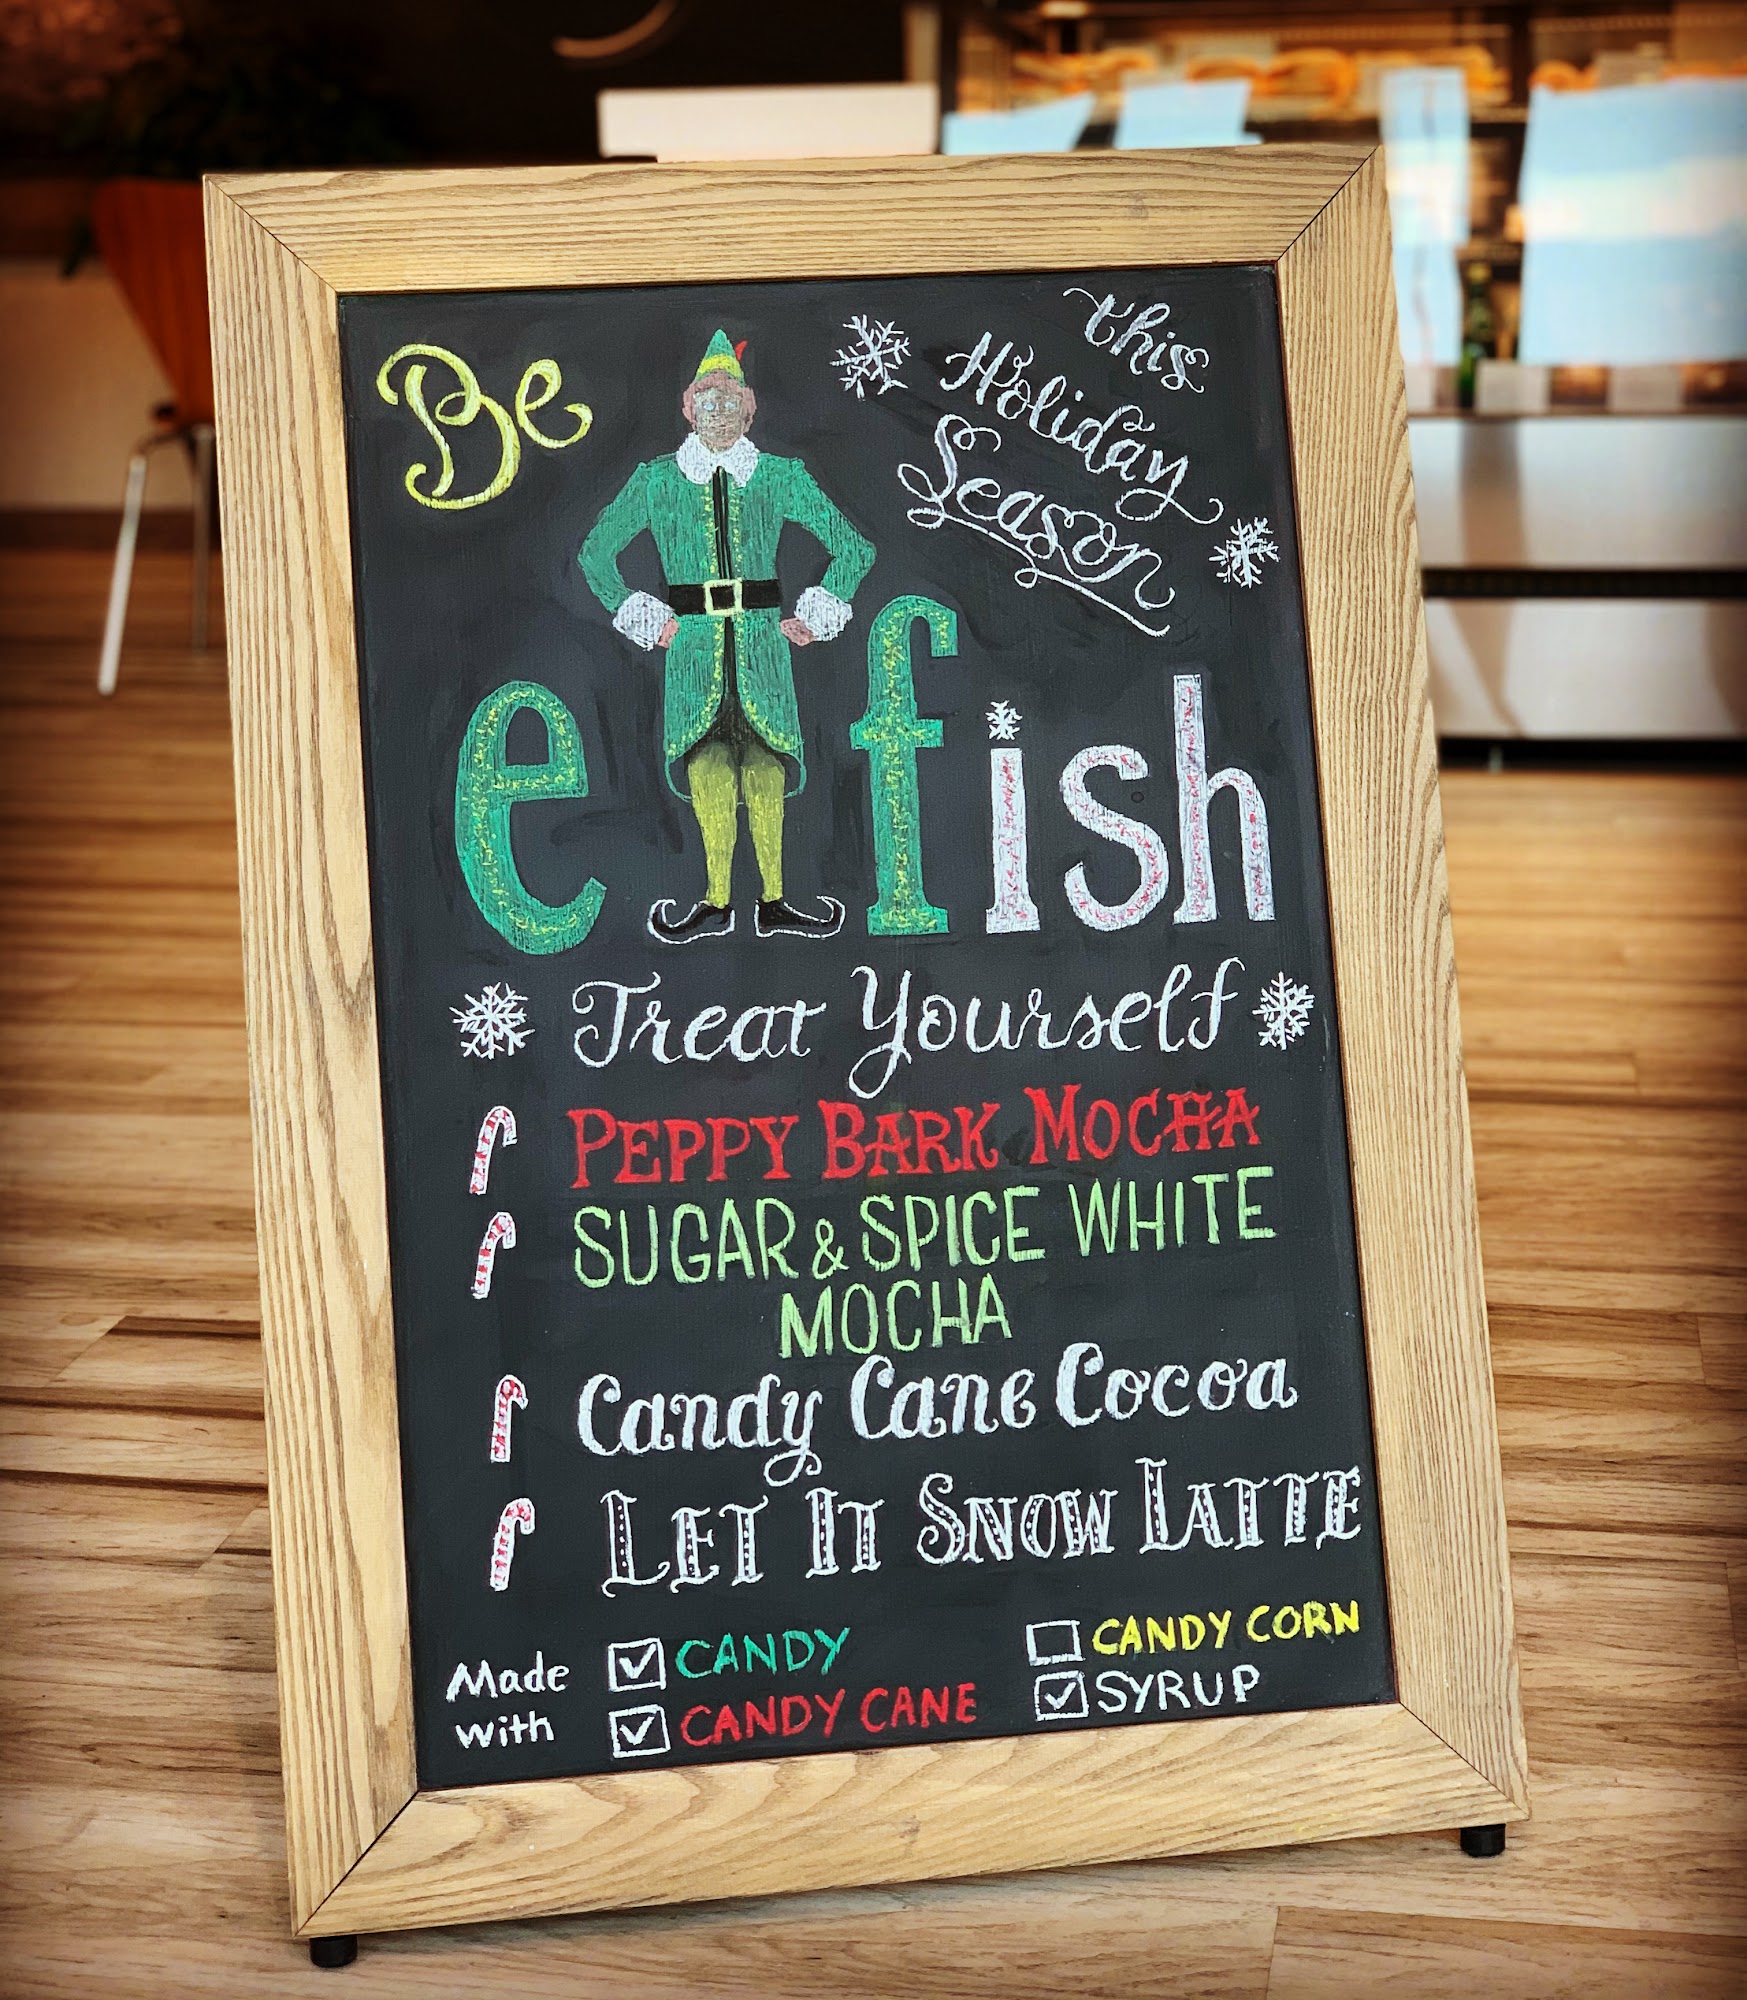 Be
this
Holiday
Season
elfish
Treat Yourself
PEPPY BARK MOCHA
SUGAR & SPICE WHITE
MOCHA
Candy Cane Cocoa
LET IT SNOW LATTE
Made
with
CANDY
CANDY CORN
CANDY CANE
SYRUP